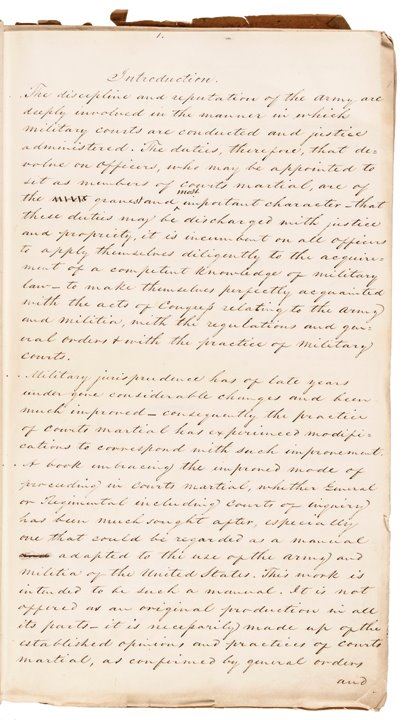 1.
Introduction.
The discipline and reputation of the Army are
deeply involved in the manner in which
military courts are conducted and justice
administered. The duties, therefore, that de-
volve on Officers, who may be appointed to
set as members of Courts martial, are of
the grave and most important character – that
these duties may be discharged with justice
and propriety, it is incumbent on all officers
to apply themselves diligently to the acquire-
ment of a competent knowledge of military
law – to make themselves perfectly acquainted
with the acts of Congress relating to the army
and militia, with the regulations and gen-
eral orders & with the practice of military
courts.
Military jurisprudence has of late years
under gone considerable changes and been
much improved – consequently the practice
of Courts martial has experienced modifi-
cations to correspond with such improvement.
A book embracing the improved mode of
proceeding in Courts martial, whether General
or Regimental including Courts of inquiry
has been much sought after, especially
one that could be regarded as a manual
adapted to the use of the army and
militia of the United States. This work is
intended to be such a manual. It is not
offered as an original production in all
its parts – it is necessarily made up of the
established opinions and practices of Courts
martial, as confirmed by general orders
and